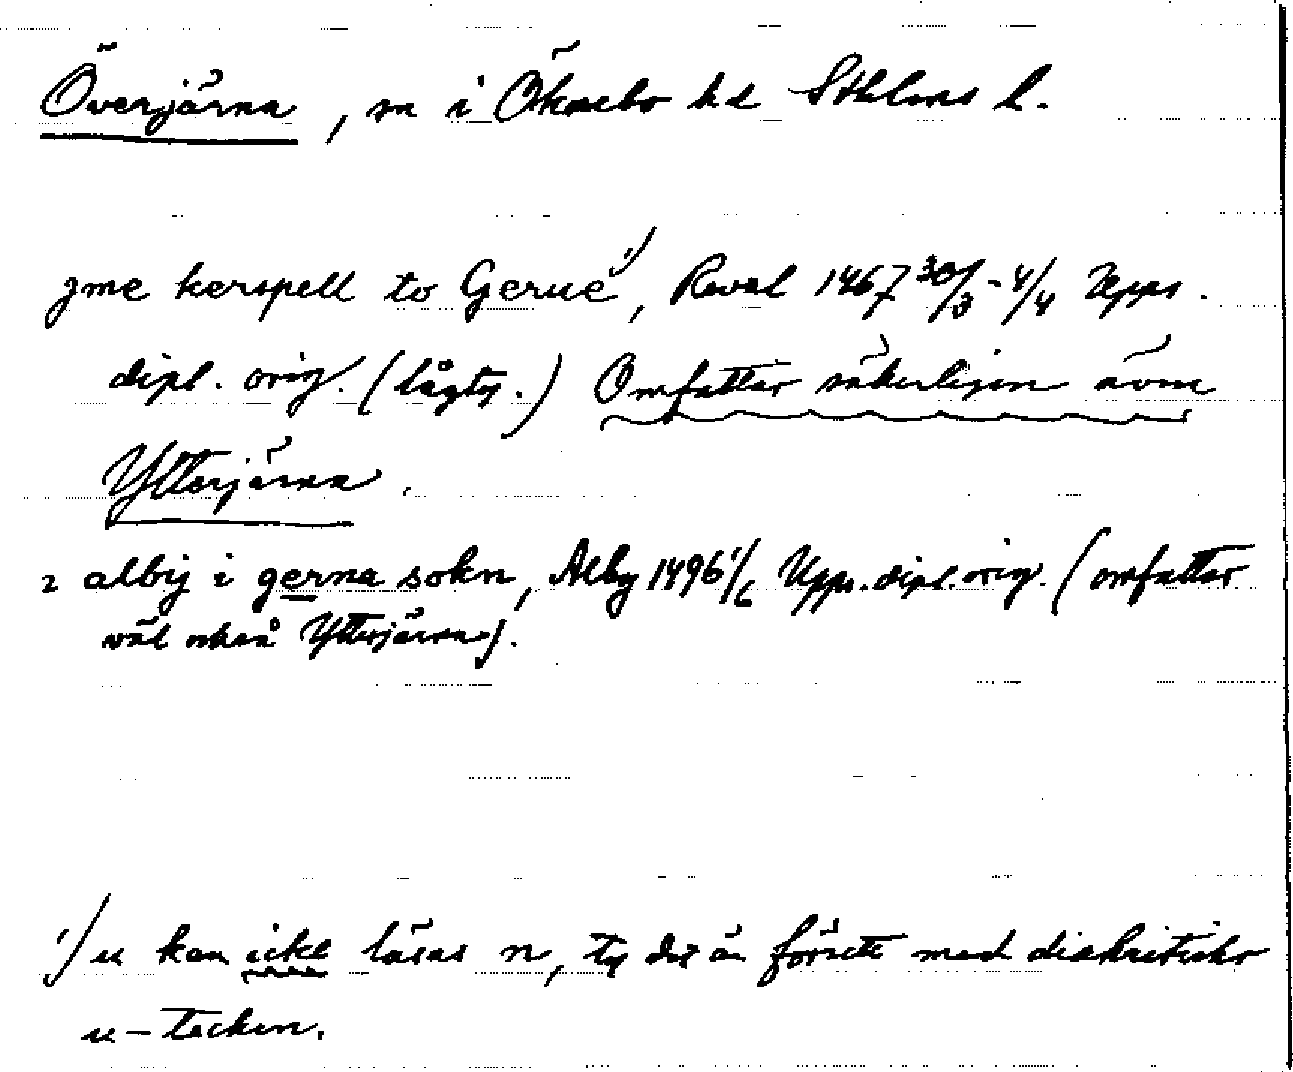 Överjärna, sn i Öknebo hd Sthlms l.
jme kerspell to Gerue 1), Reval 1467 30/3 - 4/4 Upps.
dipl. orig. (lågty.) Omfattar säkerligen även
Ytterjärna.
2 albij i gerna sokn, Alby 1496 1/6 Upps. dipl. orig. (omfattar
väl också Ytterjärna).
1) u kan icke läsas n, ty det är försett med diakritiskt
u-tecken.